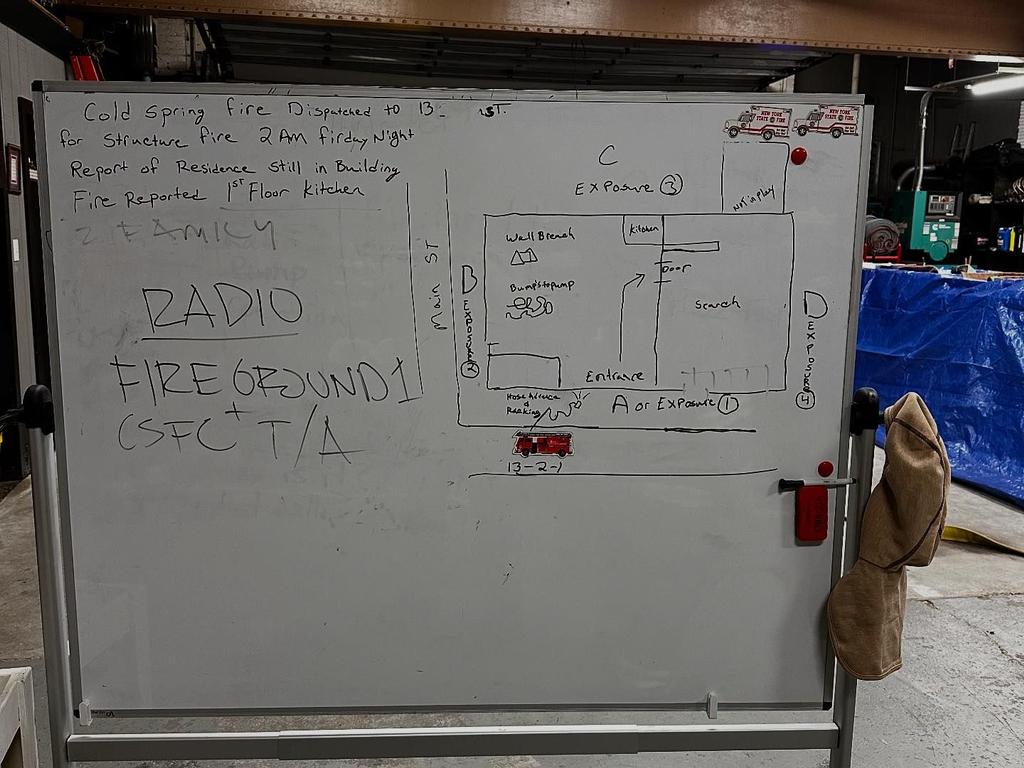 Cold Spring fire Dispatched to 13- ST.
for Structure fire 2 Am firday Night
Report of Residence still in Building
Fire Reported 1ST Floor Kitchen
2 FAMILY
RADIO
FIREGROUND1
CSFC + T/A
Main ST
C
Exposure 3
NEW YORK STATE FIRE
NEW YORK STATE FIRE
Not in play
B
Exposure 2
Wall Breach
Kitchen
Door
Search
Entrance
D
Exposure 4
A or Exposure 1
13-2-1